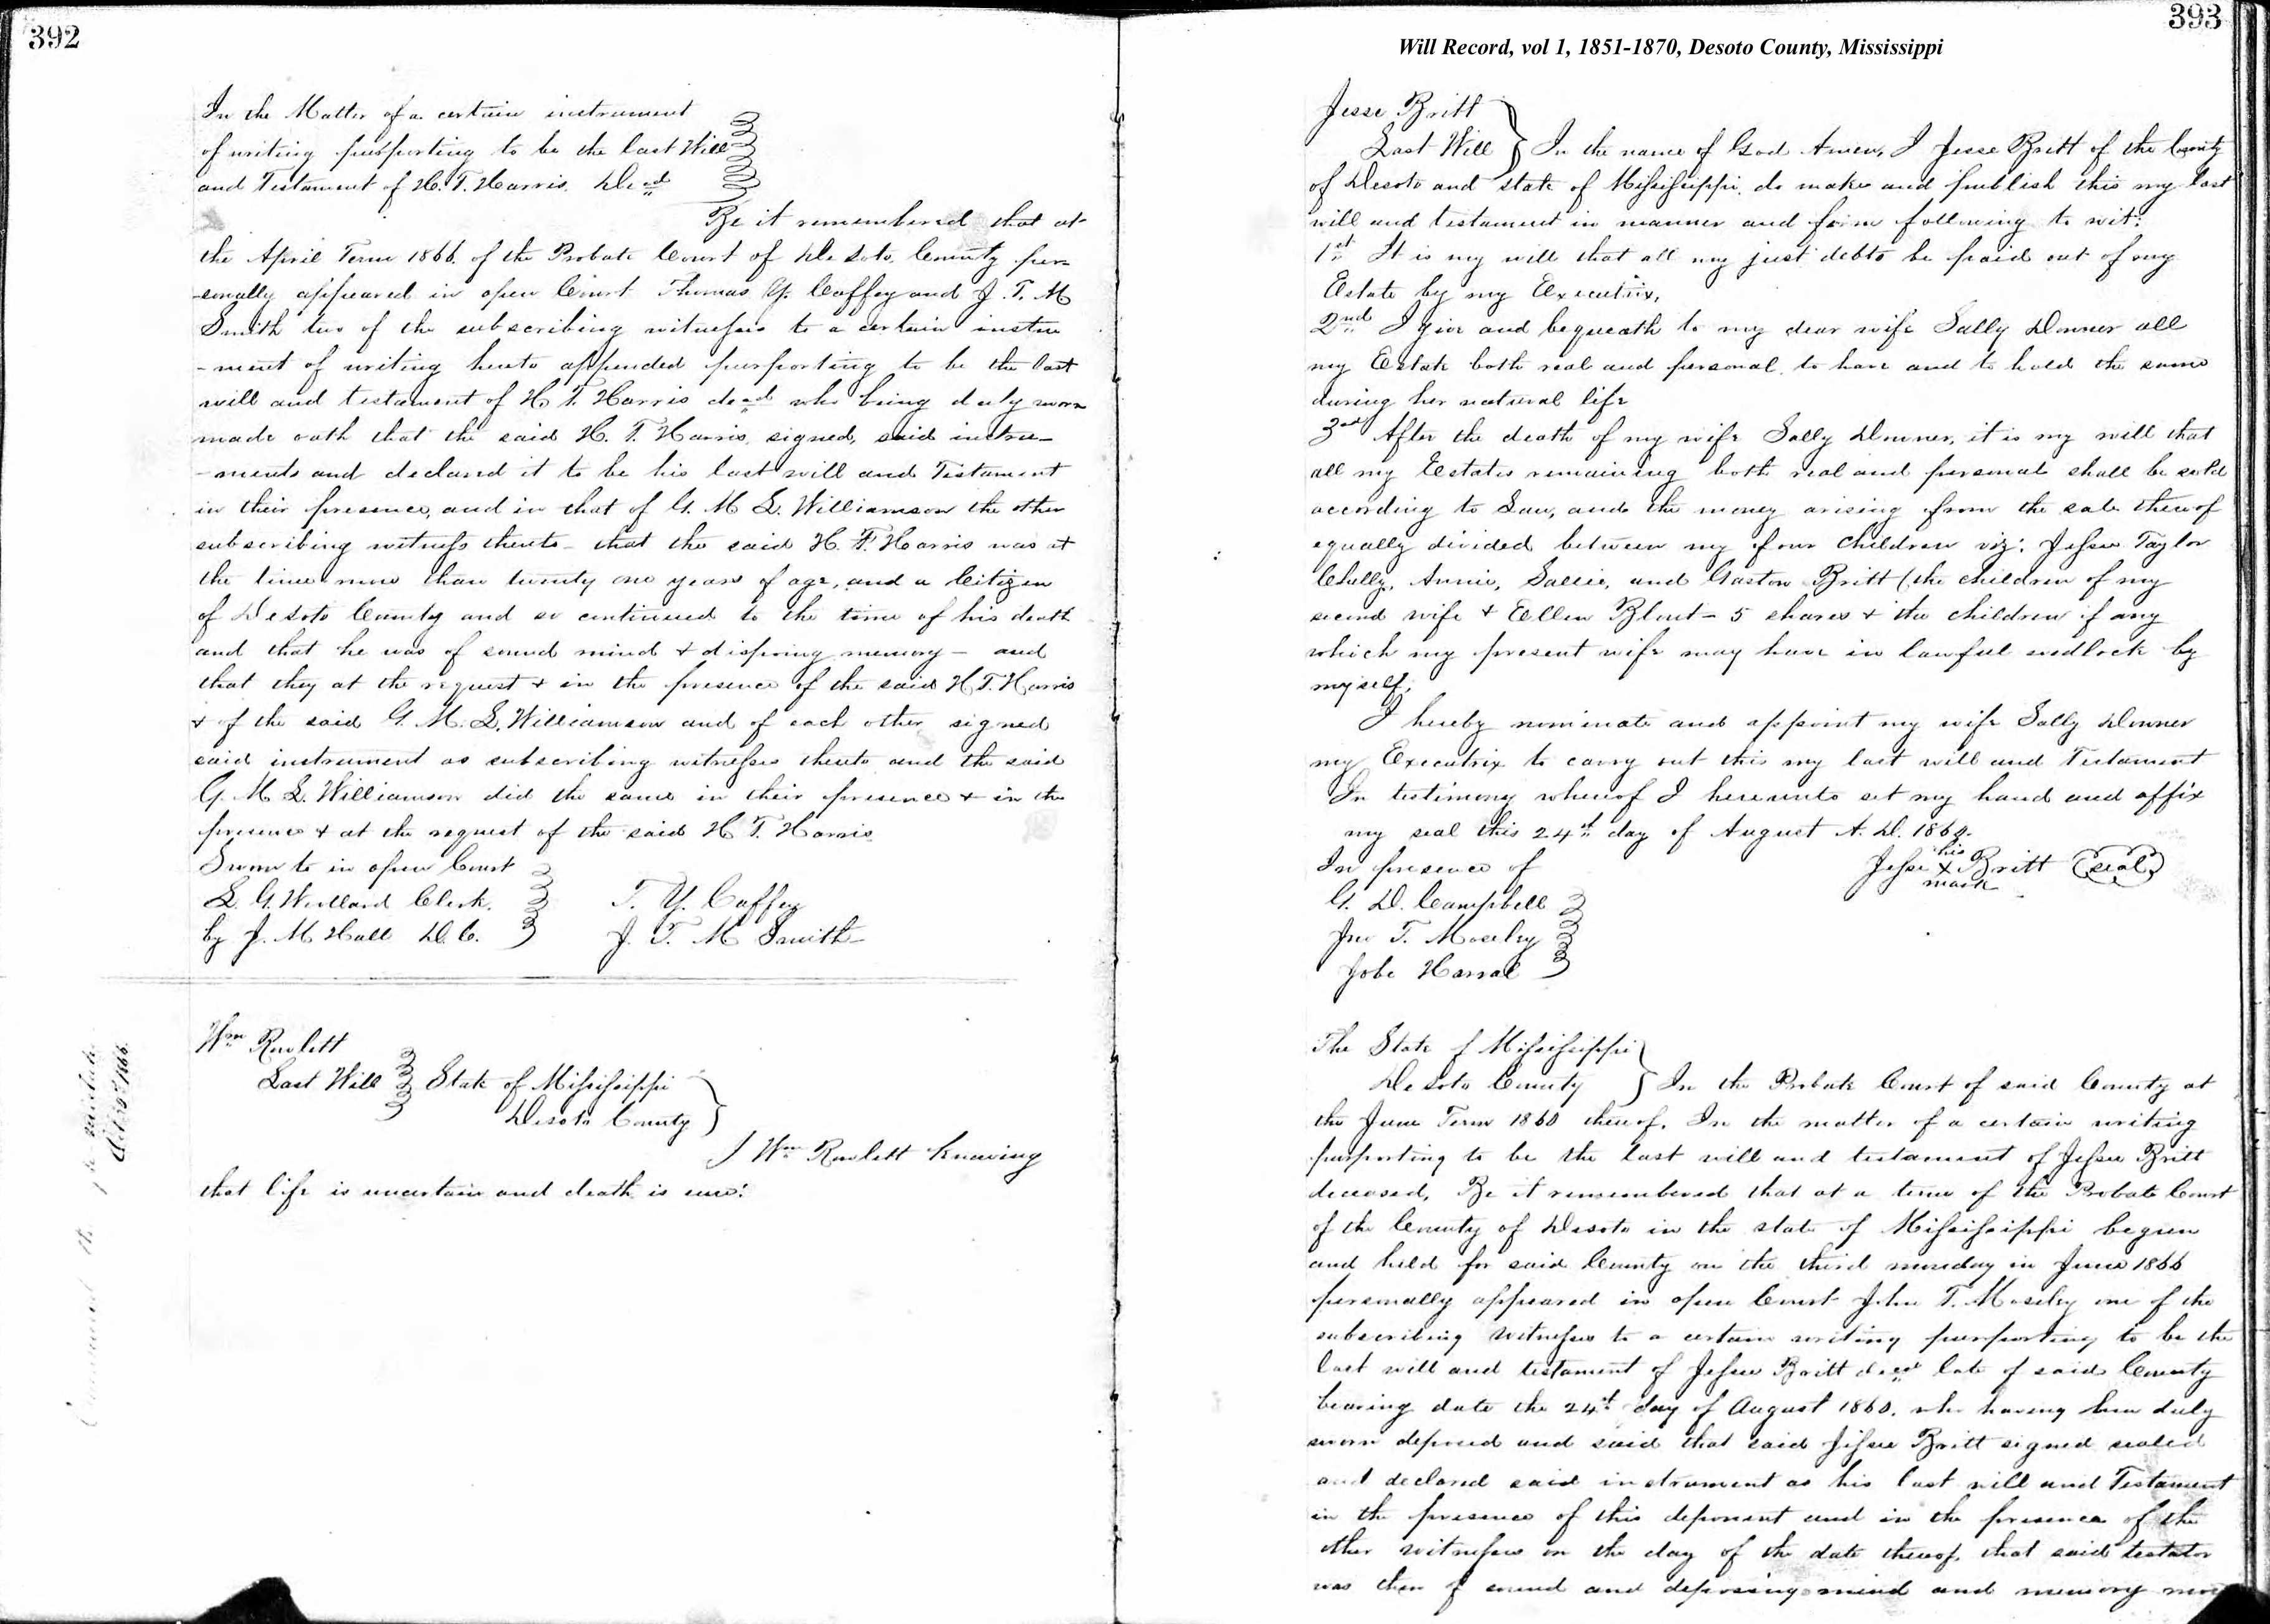 392
In the Matter of a certain instrument
of writing purporting to be the last Will
and Testament of H. T. Harris. Decd
Be it remembered that at
the April Term 1866 of the Probate Court of De Soto County per-
-sonally appeared in open Court Thomas Y. Caffey and J. T. M
Smith two of the subscribing witnesses to a certain instru
-ment of writing hereto appended purporting to be the last
will and testament of H. T. Harris decd who being duly sworn
made oath that the said H. T. Harris, signed, said instru-
-ments and declared it to be his last will and Testament
in their presence, and in that of G. M L. Williamson the other
subscribing witness thereto - that the said H. T. Harris was at
the time more than twenty one years of age, and a Citizen
of Desoto County and so continued to the time of his death
and that he was of sound mind & disposing memory - and
that they at the request & in the presence of the said H T. Harris
& of the said G. M. L. Williamson and of each other, signed
said instrument as subscribing witnesses thereto and the said
G. M L. Williamson did the same in their presence & in the
presence & at the request of the said H T. Harris
Sworn to in open Court
L. G. Clerk. T. Y. Caffey
by J. M Hall D. C. J. T. M Smith
Wm Rowlett
Last Will State of Mississippi
Desoto County
I Wm Rowlett knowing
that life is uncertain and death is sure:
393
Will Record, vol 1, 1851-1870, Desoto County, Mississippi
Jesse Britt
Last Will In the name of God Amen, I Jesse Britt of the County
of Desoto and state of Mississippi do make and publish this my last
will and testament in manner and form following to wit:
1st It is my will that all my just debts be paid out of my
Estate by my Executrix,
2nd I give and bequeath to my dear wife Sally Downer all
my Estate both real and personal, to have and to hold the same
during her natural life
3rd After the death of my wife Sally Downer, it is my will that
all my Estates remaining both real and personal shall be sold
according to Law, and the money arising from the sale thereof
equally divided between my four children viz: Jesse Taylor
Annie, Sallie, and Gaston Britt (the children of my
second wife & Ellen Blout - 5 shares & the children if any
which my present wife may have in lawful wedlock by
myself,
I hereby nominate and appoint my wife Sally Downer
my Executrix to carry out this my last will and Testament
In testimony whereof I hereunto set my hand and affix
my seal this 24th day of August A. D. 1860.
In presence of Jesse his X mark Britt (seal)
G. D. Campbell
Jno T. Moseley
Jobe Harral
The State of Mississippi
De Soto County In the Probate Court of said County at
the June Term 1860 thereof. In the matter of a certain writing
purporting to be the last will and testament of Jesse Britt
deceased, Be it remembered that at a term of the Probate Court
of the County of Desoto in the state of Mississippi begun
and held for said County on the third monday in June 1866
personally appeared in open Court John T. Moseley one of the
subscribing witnesses to a certain writing purporting to be the
last will and testament of Jesse Britt decd late of said County
bearing date the 24th day of August 1860. who having been duly
sworn deposed and said that said Jesse Britt signed sealed
and declared said instrument as his last will and Testament
in the presence of this deponent and in the presence of the
other witnesses on the day of the date thereof, that said testator
was then of sound and disposing mind and memory more